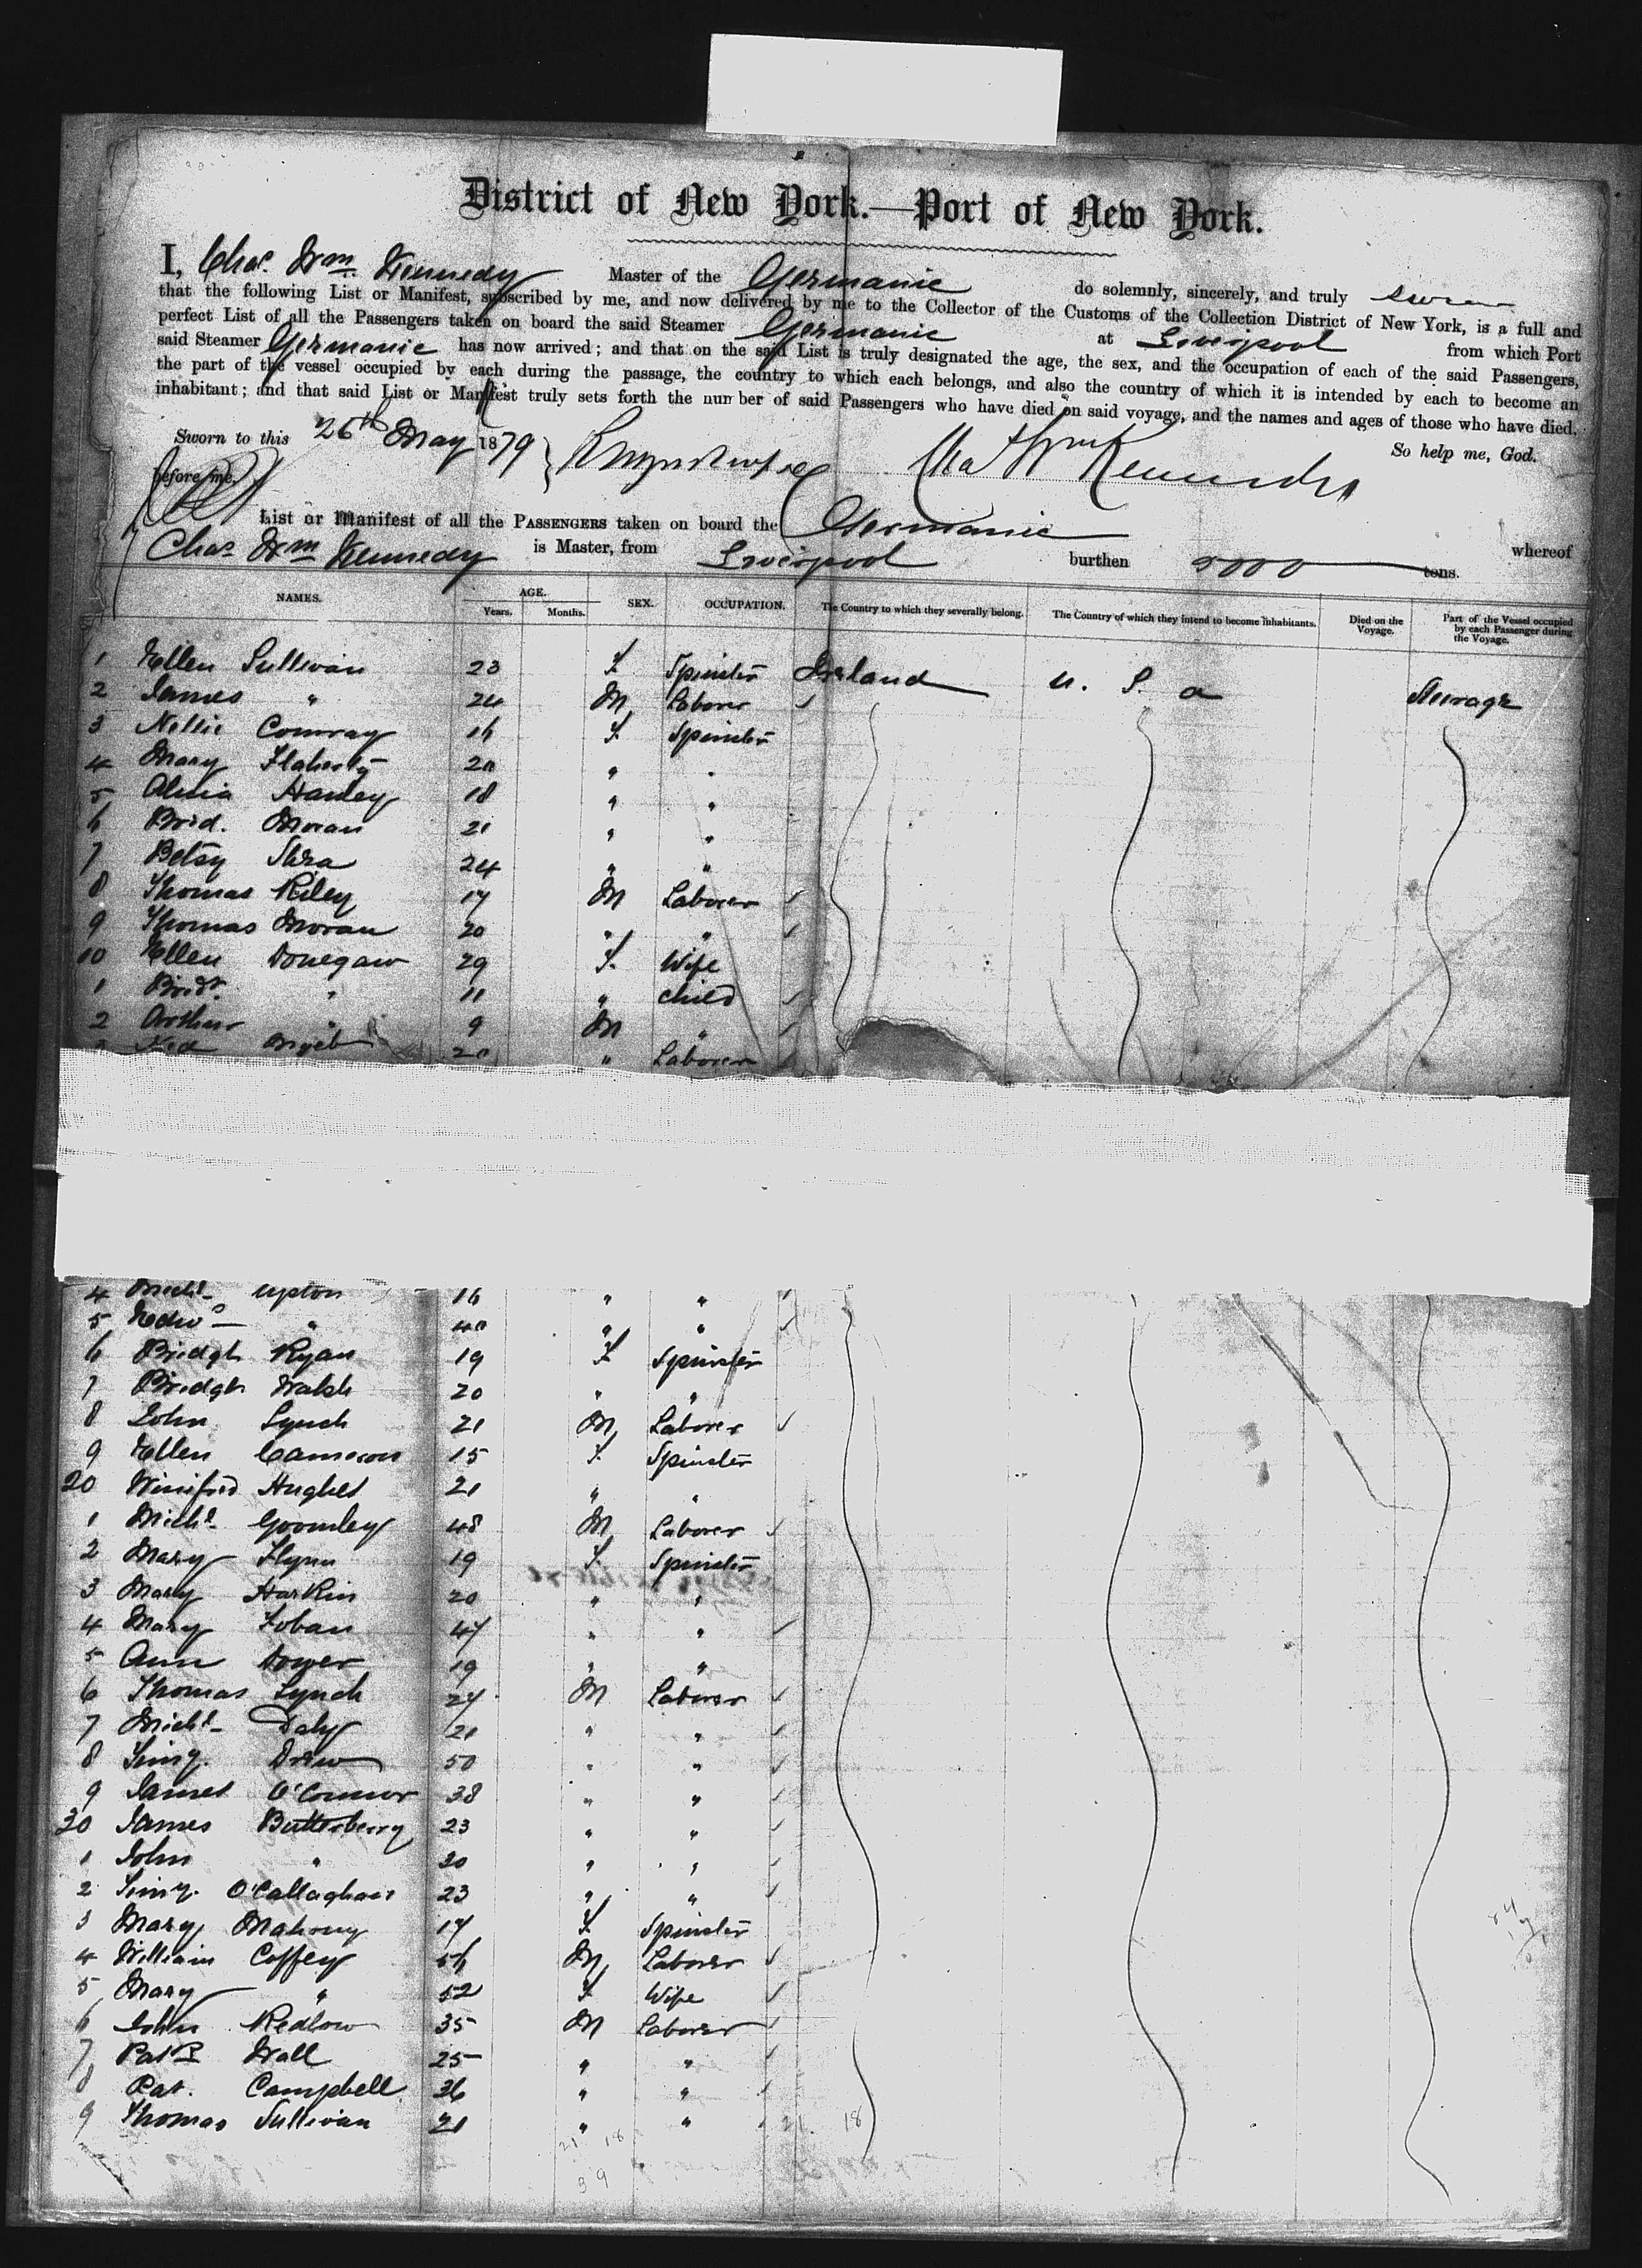 District of New York.—Port of New York.
I, Chas. Wm. Kennedy Master of the Germanic do solemnly, sincerely, and truly swear
that the following List or Manifest, subscribed by me, and now delivered by me to the Collector of the Customs of the Collection District of New York, is a full and
perfect List of all the Passengers taken on board the said Steamer Germanic at Liverpool from which Port
said Steamer Germanic has now arrived; and that on the said List is truly designated the age, the sex, and the occupation of each of the said Passengers,
the part of the vessel occupied by each during the passage, the country to which each belongs, and also the country of which it is intended by each to become an
inhabitant; and that said List or Manifest truly sets forth the number of said Passengers who have died on said voyage, and the names and ages of those who have died.
So help me, God.
Sworn to this 26th May 1879 Chas Wm Kennedy
before me,
List or Manifest of all the PASSENGERS taken on board the Germanic whereof
Chas Wm Kennedy is Master, from Liverpool burthen 5000 tons.
NAMES. AGE. Years. Months. SEX. OCCUPATION. The Country to which they severally belong. The Country of which they intend to become inhabitants. Died on the Voyage. Part of the Vessel occupied by each Passenger during the Voyage.
1 Ellen Sullivan 23 F Spinster Ireland U. S. a Steerage
2 James " 24 M Laborer
3 Nellie Conway 16 F Spinster
4 Mary Flaherty 20 " "
5 Hanley 18 " "
6 Brid. Moran 21 " "
7 Betsy Shea 24 " "
8 Thomas Riley 17 M Laborer
9 Thomas Moran 20 " "
10 Ellen Donegan 29 F. Wife
1 Bridt. " 11 " Child
2 Arthur " 9 M "
3 Ned 20 " Laborer
4 Michl Upton 16 " "
5 Edwd " 40 " "
6 Bridgt Ryan 19 F Spinster
7 Bridgt Walsh 20 " "
8 John Lynch 21 M Laborer
9 Ellen Cameron 15 F. Spinster
20 Winifred Hughes 21 " "
1 Michl Goomley 48 M Laborer
2 Mary Flynn 19 F. Spinster
3 Mary Harkin 20 " "
4 Mary Foban 47 " "
5 Ann Dower 19 " "
6 Thomas Lynch 24 M Laborer
7 Michl Daly 21 " "
8 Timy. Drew 50 " "
9 James O'Connor 38 " "
30 James Butterberry 23 " "
1 John " 30 " "
2 Timy. O'Callaghan 23 " "
3 Mary Mahony 17 F Spinster
4 William Coffey 56 M Laborer
5 Mary " 52 F Wife
6 John Redlow 35 M Laborer
7 Patk Wall 25 " "
8 Pat. Campbell 36 " "
9 Thomas Sullivan 21 " " 21 18
21 18
39